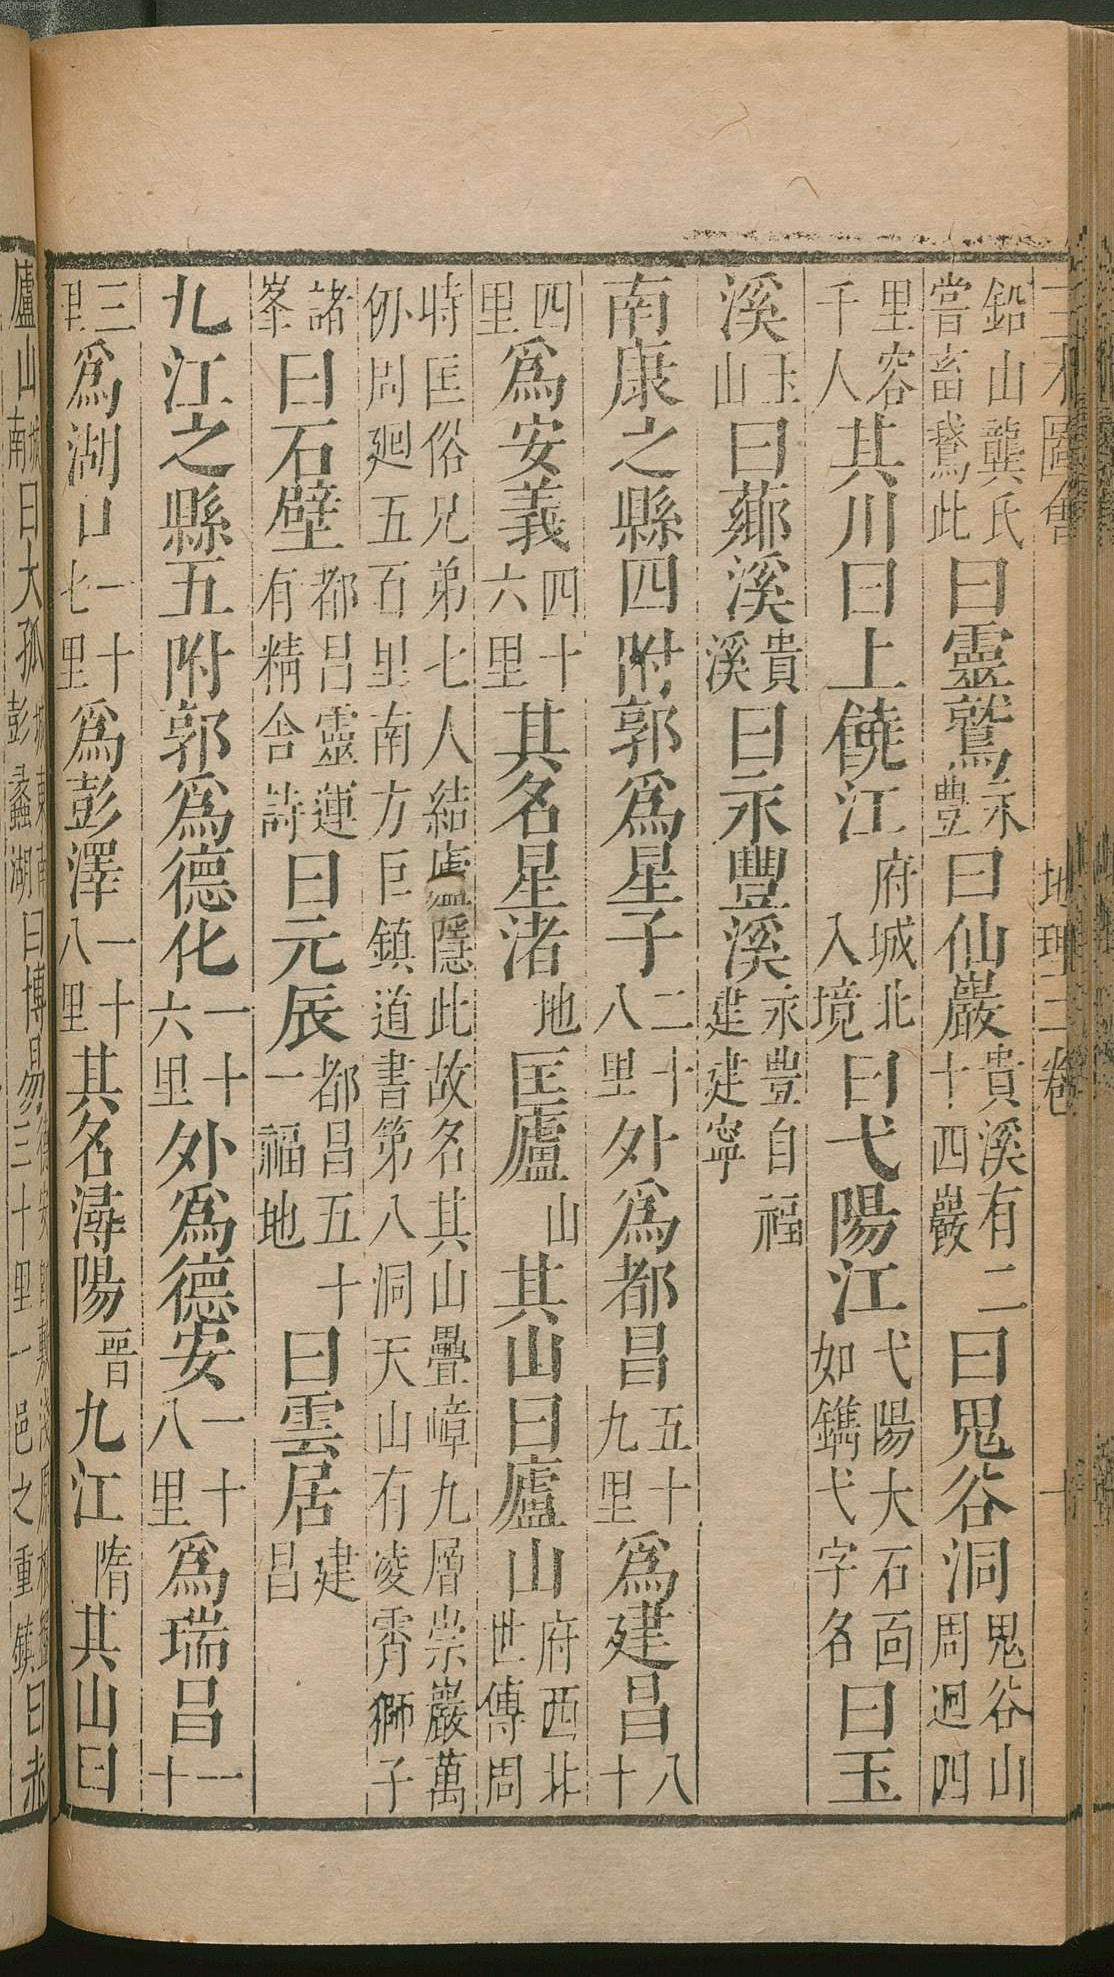 三才圖會 地理三卷 十
鉛山龔氏嘗畜鵞此曰靈鷲永豐曰仙巖貴溪有二十四巖曰鬼谷洞鬼谷山周迴四
里容千人其川曰上饒江府城北入境曰弋陽江弋陽大石面如鐫弋字名曰玉
溪玉山曰薌溪貴溪曰永豐溪永豐自福建建寧
南康之縣四附郭爲星子二十八里外爲都昌五十九里爲建昌八十
四里爲安義四十六里其名星渚地匡廬山其山曰廬山府西北世傳周
時匡俗兄弟七人結廬隱此故名其山疊嶂九層崇巖萬仞周廻五百里南方巨鎮道書第八洞天山有凌霄獅子
諸峯曰石壁都昌靈運有精舍詩曰元辰都昌五十一福地曰雲居建昌
九江之縣五附郭爲德化一十六里外爲德安一十八里爲瑞昌一十
三里爲湖口一十七里爲彭澤一十八里其名潯陽晋九江隋其山曰
廬山城南曰大孤城東南彭蠡湖曰博昜德安三十里一邑之重鎮曰赤